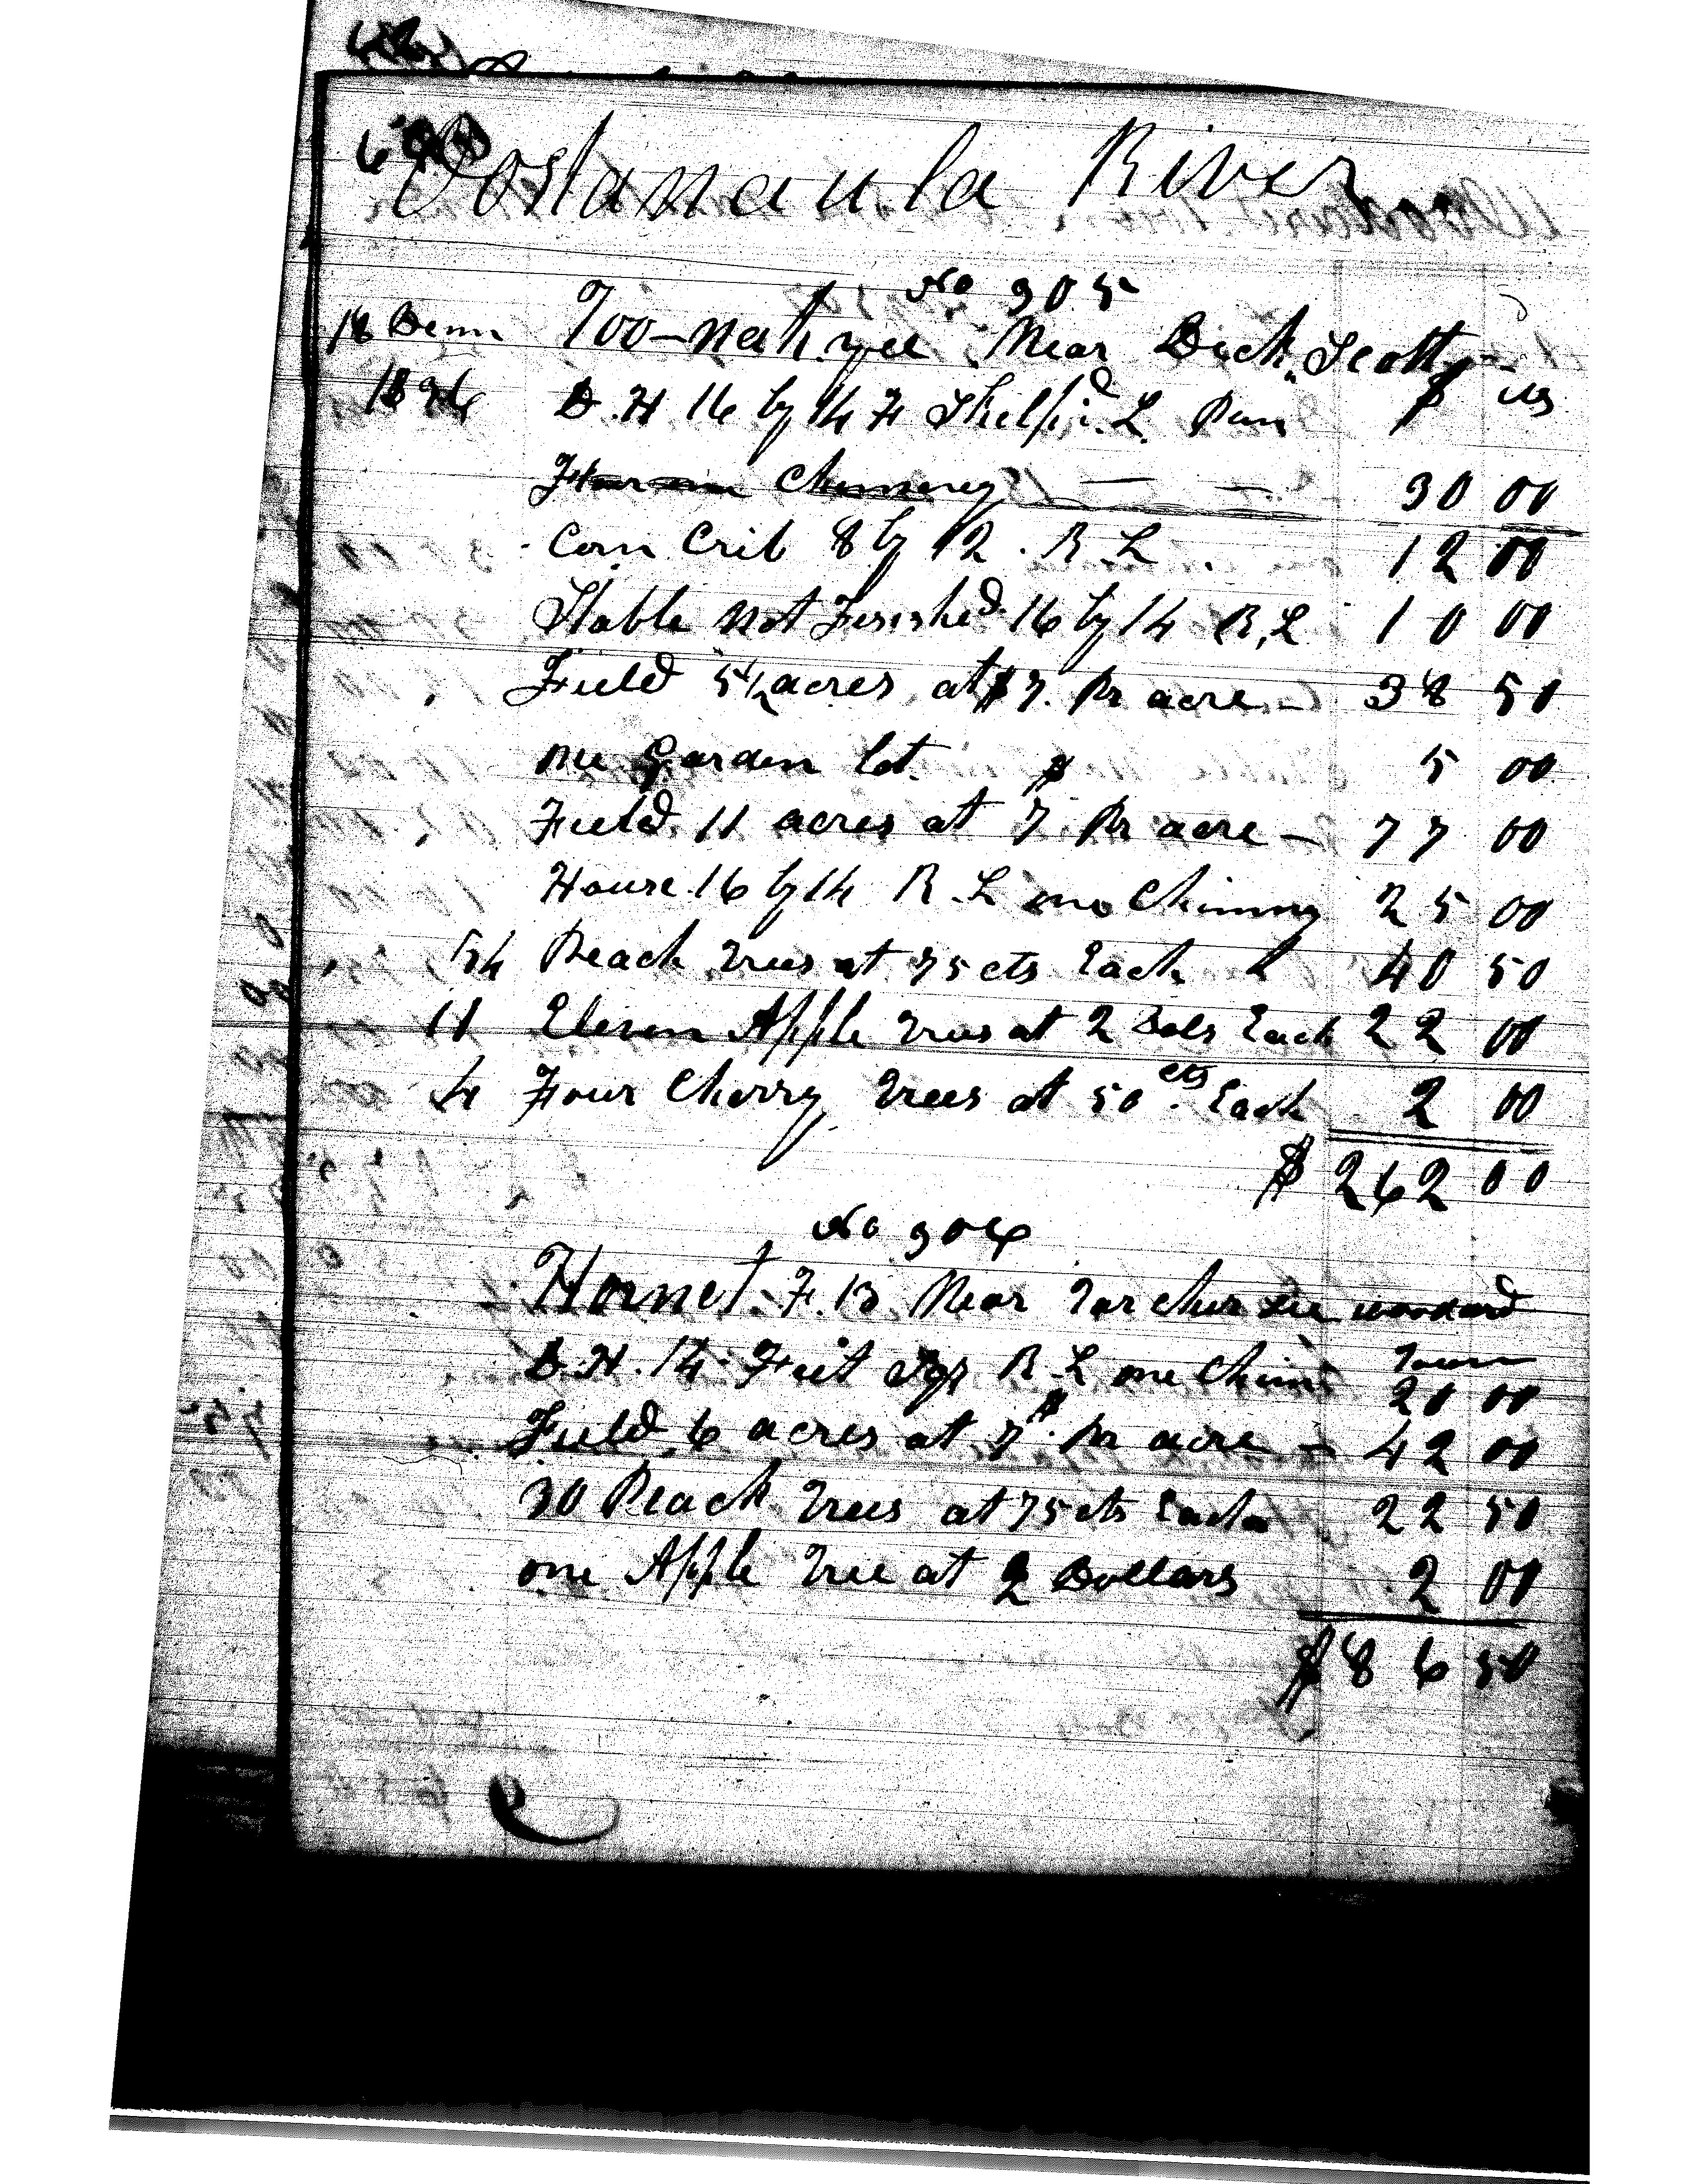 Oostanaula River
No 305
18 Decm Too-nah-yee Near Dick Scotts
1836 D.H 16 by 14 F Skelpd. L. Pun
$ cts
Floor one Chimney — — 30 00
Corn Crib 8 by 12 . R L 12 00
Stable not Finished 16 by 14 R,L 10 00
Field 5 1/2 acres at $7. Pr acre - 38 50
one Garden lot. 5 00
Field 11 acres at $7 Pr acre - 77 00
House 16 by 14 R.L one Chimny 25 00
54 Peach Trees at 75 cts Each 40 50
11 Eleven Apple Trees at 2 Dols Each 22 00
4 Four Cherry Trees at 50 cts Each 2 00
$ 262 00
No 306
Hornet F. 13 Near Tarcheechee woodard
Town
D.H. 14 Feet Sqr R L one Chim 20 00
Field 6 acres at 7$ Pr acre - 42 00
30 Peach Trees at 75 cts Each 22 50
one Apple Tree at 2 Dollars 2 00
$ 86 50